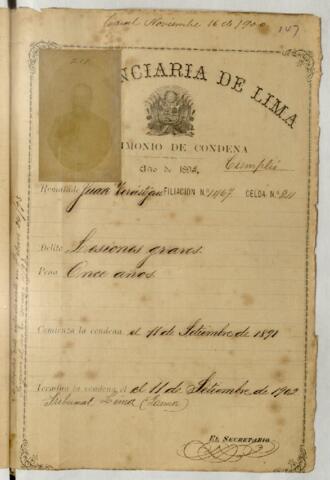 Noviembre 16 de 1900
147
210
NCIARIA DE LIMA
IMONIO DE CONDENA
Año de 189
Cumplió
Rematado Juan FILIACIÓN N.º 1467 CELDA N.º 24
Delito Lesiones graves.
Pena Once años.
Comienza la condena el 11 de Setiembre de 1891
Termina la condena el 11 de Setiembre de 1902
Tribunal
EL SECRETARIO